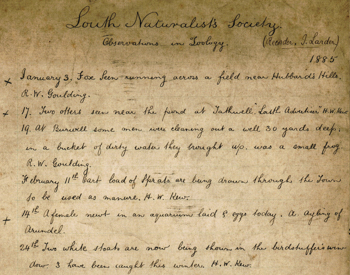 Louth Naturalists Society.
Observations in Zoology (Recorder, J. Larder)
1885
x January 3. Fox seen running across a field near Hubbard's Hills.
R.W. Goulding.
x 17. Two otters seen near the pond at Tathwell. Louth Advertiser H.W. Kew.
19. At Burwell some men were cleaning out a well 30 yards deep,
in a bucket of dirty water they brought up, was a small frog.
R.W. Goulding.
February 11th Cart load of Sprats are being drawn through the Town
to be used as manure. H.W. Kew.
x 14th A female newt in an aquarium laid 8 eggs today. A. Ayling of
Arundel.
24th Two white stoats are now being shown in the birdstuffer's win
dow 3 have been caught this winter H.W. Kew.